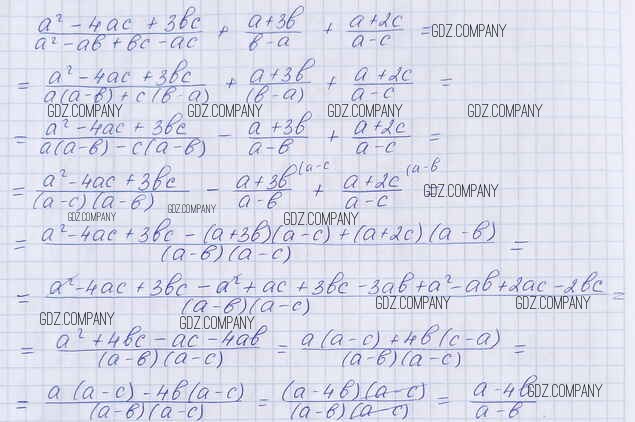 (a² - 4ac + 3bc)/(a² - ab + bc - ac) + (a + 3b)/(b - a) + (a + 2c)/(a - c) = GDZ.COMPANY
= (a² - 4ac + 3bc)/(a(a - b) + c(b - a)) + (a + 3b)/(b - a) + (a + 2c)/(a - c) =
GDZ.COMPANY GDZ.COMPANY GDZ.COMPANY GDZ.COMPANY
= (a² - 4ac + 3bc)/(a(a - b) - c(a - b)) - (a + 3b)/(a - b) + (a + 2c)/(a - c) =
= (a² - 4ac + 3bc)/((a - c)(a - b)) - (a + 3b)/(a - b) (a - c + (a + 2c)/(a - c) (a - b = GDZ.COMPANY
GDZ.COMPANY GDZ.COMPANY GDZ.COMPANY
= (a² - 4ac + 3bc - (a + 3b)(a - c) + (a + 2c)(a - b))/((a - b)(a - c)) =
= (a² - 4ac + 3bc - a² + ac + 3bc - 3ab + a² - ab + 2ac - 2bc)/((a - b)(a - c)) =
GDZ.COMPANY GDZ.COMPANY
GDZ.COMPANY GDZ.COMPANY
= (a² + 4bc - ac - 4ab)/((a - b)(a - c)) = (a(a - c) + 4b(c - a))/((a - b)(a - c)) =
= (a(a - c) - 4b(a - c))/((a - b)(a - c)) = ((a - 4b)(a - c))/((a - b)(a - c)) = (a - 4b)/(a - b) GDZ.COMPANY